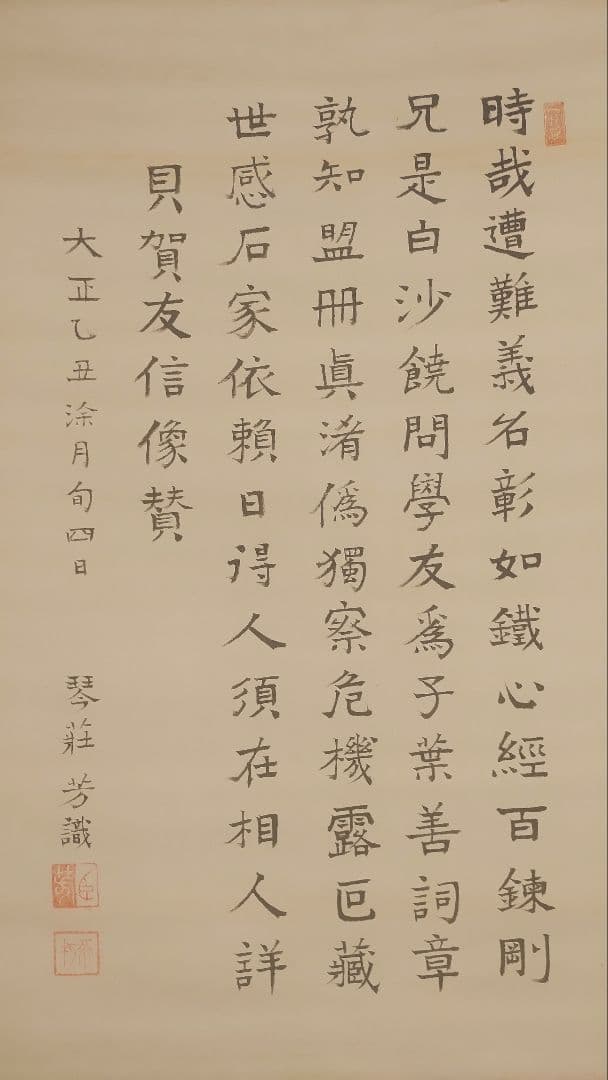 時哉遭難義名彰如鐵心經百鍊剛
兄是白沙饒問學友爲子葉善詞章
孰知盟冊眞淆僞獨察危機露叵藏
世感石家依賴日得人須在相人詳
貝賀友信像賛
大正乙丑涂月旬四日
琴莊芳識